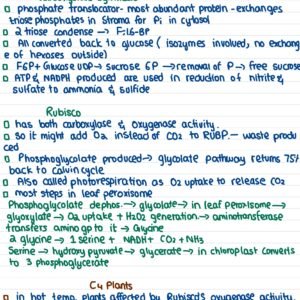 □ phosphate translocator- most abundant protein - exchanges
triose phosphates in Stroma for Pi in cytosol
□ 2 triose condense → F:1,6-BP
□ All converted back to glucose ( isozymes involved, no exchang
e of hexoses outside)
□ F6P + Glucose UDP → sucrose 6P → removal of P → free sucrose
□ ATP & NADPH produced are used in reduction of nitrite &
sulfate to ammonia & sulfide
Rubisco
□ has both carboxylase & oxygenase activity.
□ so it might add O2 instead of CO2 to RUBP. — waste produ
ced
□ Phosphoglycolate produced → glycolate pathway returns 75%
back to calvin cycle
□ Also called photorespiration as O2 uptake to release CO2
□ most steps in leaf peroxisome
Phosphoglycolate dephos. → glycolate → in leaf peroxisome →
glyoxylate → O2 uptake + H2O2 generation → aminotransferase
transfers amino gp to it → Glycine
2 glycine → 1 serine + NADH + CO2 + NH3
Serine → hydroxy pyruvate → glycerate → in chloroplast converts
to 3 phosphoglycerate
C4 Plants
□ in hot temp. plants affected by Rubisco's oxygenase activity.